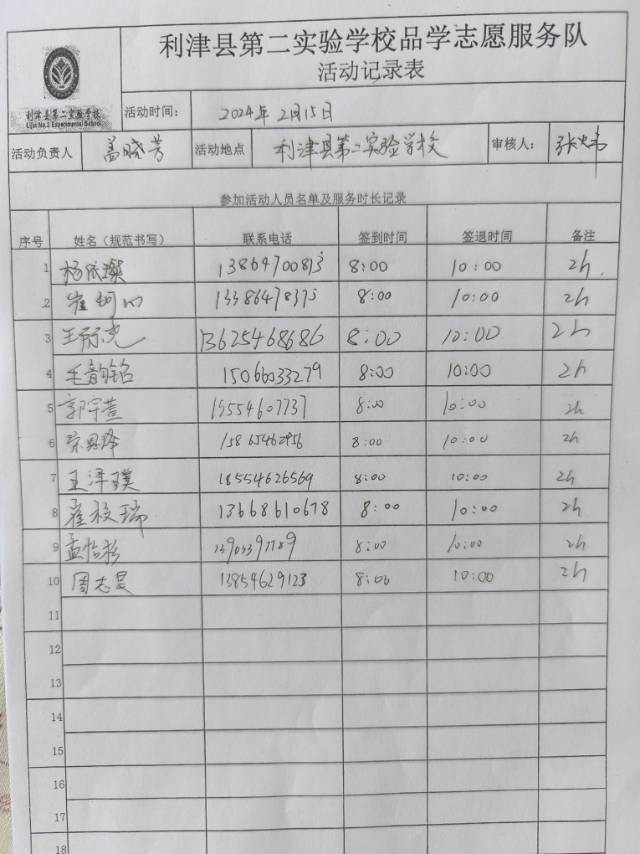 利津县第二实验学校品学志愿服务队
活动记录表
利津县第二实验学校
Lijin No.2 Experimental School
活动时间： 2024年2月15日
活动负责人 盖晓芳 活动地点 利津县第二实验学校 审核人：
参加活动人员名单及服务时长记录
序号 姓名（规范书写） 联系电话 签到时间 签退时间 备注
1 杨依璨 13864700873 8:00 10:00 2h
2 8:00 10:00 2h
3 13625468686 8:00 10:00 2h
4 毛韵铭 15066033279 8:00 10:00 2h
5 郭宇萱 8:00 10:00 2h
6 8:00 10:00 2h
7 王泽璞 18554626569 8:00 10:00 2h
8 13668610678 8:00 10:00 2h
9 孟怡彤 8:00 10:00 2h
10 周志昊 13854629123 8:00 10:00 2h
11
12
13
14
15
16
17
18